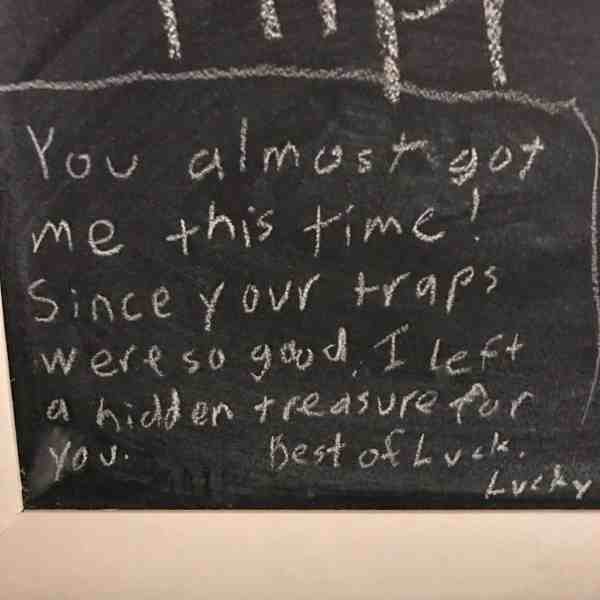 You almost got
me this time!
Since your traps
were so good, I left
a hidden treasure for
you. Best of Luck.
Lucky